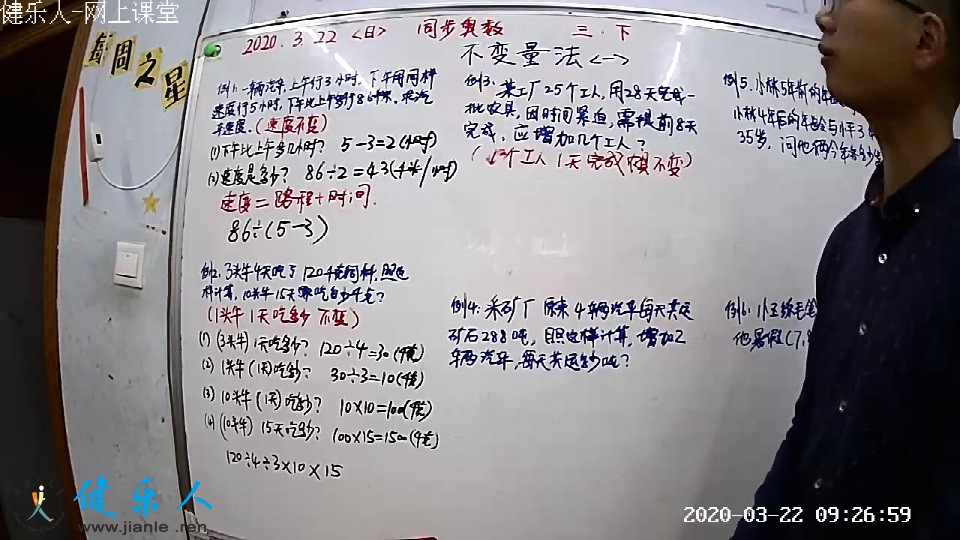 健乐人-网上课堂
每周之星
2020.3.22 <日> 同步奥数 三.下
不变量法<一>
例1:一辆汽车,上午行3小时,下午用同样
速度行5小时,下午比上午多行86千米,求汽
车速度.(速度不变)
(1)下午比上午多几小时? 5-3=2(小时)
(2)速度是多少? 86÷2=43(千米/小时)
速度=路程÷时间.
86÷(5-3)
例2.3头牛4天吃了120千克饲料,照这
样计算,10头牛15天要吃多少千克?
(1头牛1天吃多少不变)
(1)(3头牛)1天吃多少? 120÷4=30(千克)
(2)1头牛(1天)吃多少? 30÷3=10(千克)
(3)10头牛(1天)吃多少? 10×10=100(千克)
(4)(10头牛)15天吃多少? 100×15=1500(千克)
120÷4÷3×10×15
例3:某工厂25个工人,用28天完成一
批农具,因时间紧迫,需提前8天
完成,应增加几个工人?
(1个工人1天完成 不变)
例4:采矿厂原来4辆汽车每天共运
矿石288吨,照这样计算,增加2
辆汽车,每天共运多少吨?
例5.小林5年前的年
小林4年后的年龄与小平3
35岁,问他俩今年各多少
例6:小王练毛笔
他暑假(7,8
健乐人
www.jianle.ren
2020-03-22 09:26:59